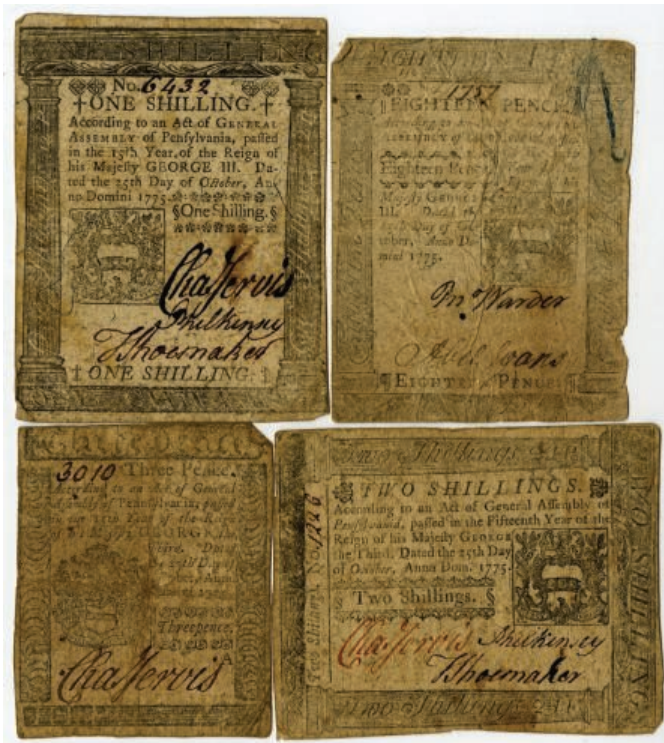 SHILLING
No. 6432
ONE SHILLING.
According to an Act of GENERAL
ASSEMBLY of Pensylvania, passed
in the 15th Year, of the Reign of
his Majesty GEORGE III. Da-
ted the 25th Day of October, An-
no Domini 1775.
§One Shilling.§
Cha Jervis
Phil Kinsey
T Shoemaker
ONE SHILLING.
1757
EIGHTEEN PENCE
According to an Act of
ASSEMBLY of
Eighteen Pence
Majesty GEORGE
III. Dated the
25th Day of Oc-
tober, Anno Do-
mini 1775.
Jn° Warder
Abel Evans
EIGHTEEN PENCE
Three pence
3010 Three Pence.
According to an Act of General
Assembly of Pensylvania, passed
in the 15th Year of the Reign
of GEORGE the
Third. Dated
the 25th Day of
Threepence.
A
Cha Jervis
Two Shillings
TWO SHILLINGS.
According to an Act of General Assembly of
Pensylvania, passed in the Fifteenth Year of the
Reign of his Majesty GEORGE
the Third. Dated the 25th Day
of October, Anno Dom. 1775.
§ Two Shillings. §
Cha Jervis Phil Kinsey
T Shoemaker
Two Shillings
Two Shillings, No.
TWO SHILLING